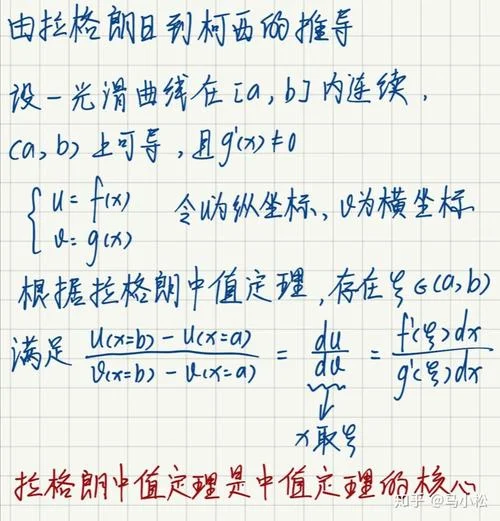 由拉格朗日到柯西的推导
设一光滑曲线在[a,b]内连续，
(a,b)上可导，且g'(x)≠0
{ u=f(x) v=g(x) 令u为纵坐标、v为横坐标
根据拉格朗中值定理，存在ξ∈(a,b)
满足 (u(x=b)-u(x=a))/(v(x=b)-v(x=a)) = du/dv = f'(ξ)dx/g'(ξ)dx
x取ξ
拉格朗中值定理是中值定理的核心
知乎 @马小松